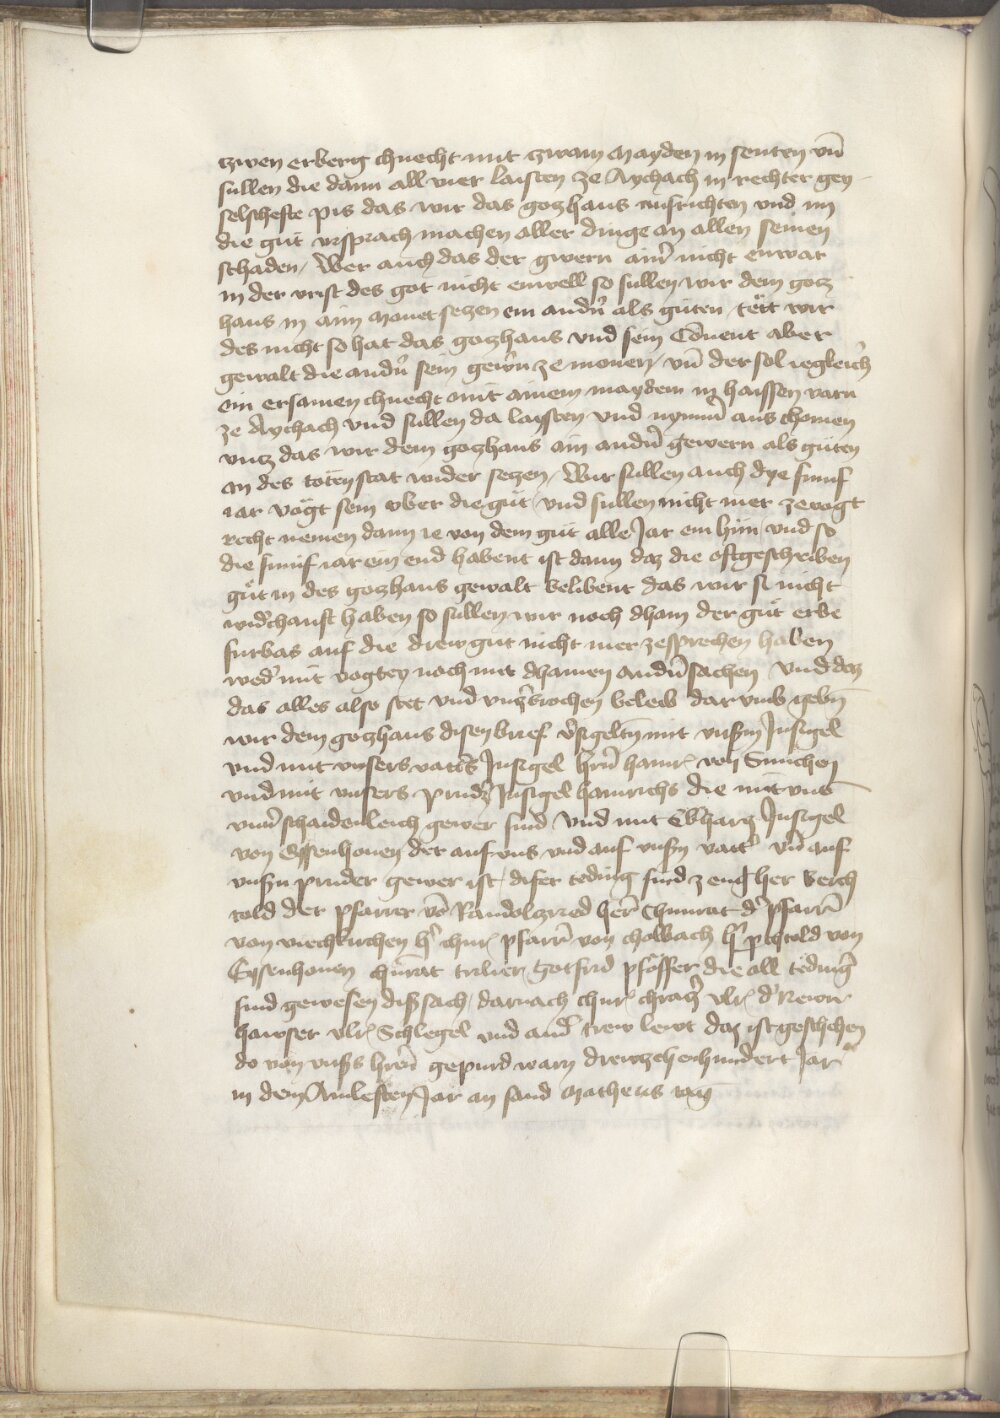 tzwen erberg chnecht mit zwain mayden in senten vn̄
sullen die dann all vier laisten ze Aychach in rechter gey-
selschefte pis das wir das gozhaus ausrichten vnd im
die gut vrsprach machen aller dinge an allen seinen
schaden / Wer auch das der gwern ain͛ nicht enwar
in der vrist des got nicht enwell so sullen wir dem goz
haus in aim monet setzen ein and͛n als guten / tett wir
des nicht so hat das gozhaus vnd sein Conuent aber
gewalt die and͛n sein gew͛n ze monen / vn̄ der sol iegleich͛
ein ersamen chnecht mit ainem maydem in haissen varn
ze Aychach vnd sullen da laysten vnd nymm͛ aus chomen
vntz das wir dem gozhaus ain and͛n gewern als guten
an des toten stat wider setzen / Wir sullen auch dye fumf
iar vogt sein vber die gut / vnd sullen nicht mer ze vogt
recht nemen dann ie von dem gut alle Jar ein hun vnd so
die fumf iar ein end habent ist dann daz die oftgeschriben
gut in des gozhaus gewalt belibent das wir si nicht
wid͛chauft haben so sullen wir noch dhain der gut erbe
furbas auf die drew gut nicht mer ze sprechen haben
wed͛ mit vogtey noch mit dhainen and͛n sachen Vnd daz
das alles also stet vnd vnz͛brochen beleib dar vmb geb͛n
wir dem gozhaus disen brief v͛sigelt͛n mit vns͛m Jnsigel
vnd mit vnsers vatt͛s Jnsigel h͛rn hainr͛ von Smichen
vnd mit vnsers prud͛s Jnsigel hainrichs die mit vns
vnu͛schaidenleich gewer sind Vnd mit Ebharz Jnsigel
von Eysenhouen der auf vns vnd auf vns͛n vatt͛ vn̄ auf
vns͛n pruder gewer ist / diser teding sind zeug her Berch
told der pfarrer vō Randolzried her͛ Chunrat d͛ pfarr͛
von viechkirchen h͛ chur͛ pfarr͛ von cholbach h͛ p͛chtold von
Eysenhouen chunrat triliuer Gotfrid pfoffer die all teding͛
sind gewesen diß sach / darnach chur͛ chrag͛ vlr͛ d͛ New
hawser vlr͛ Schlegel vnd and͛ trew lewt daz ist geschehen
do von vns͛s h͛rn gepurd warn drewzehenhundert Jar
in dem Ainlesten Jar an sand matheus tag